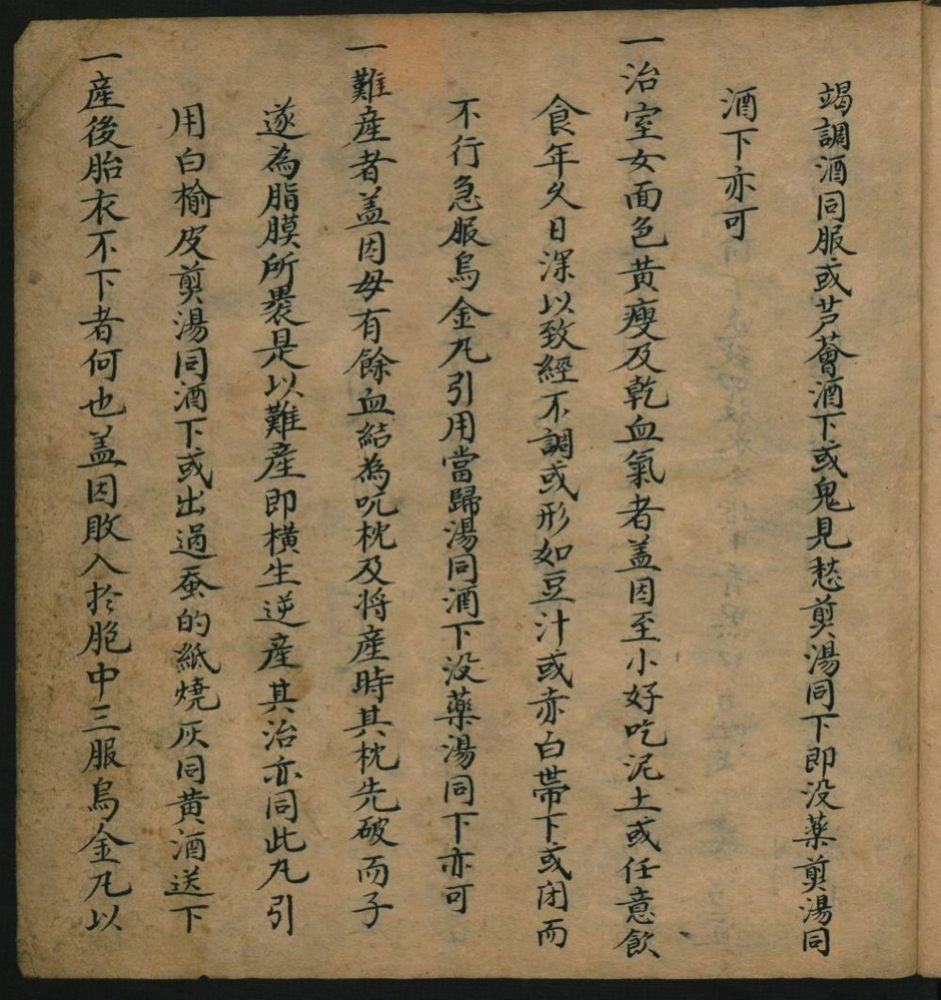 竭調酒同服或芦薈酒下或鬼見愁剪湯同下即没薬剪湯同
酒下亦可
一治室女面色黄瘦及乾血氣者盖因至小好吃泥土或任意飲
食年久日深以致經不調或形如豆汁或赤白帶下或闭而
不行急服烏金凡引用當歸湯同酒下没藥湯同下亦可
一難産者盖因毋有餘血結為呪枕及将産時其枕先破而子
遂為脂膜所裹是以難產即橫生逆産其治亦同此凡引
用白榆皮剪湯同酒下或出過蚕的紙燒灰同黄酒送下
一産後胎衣不下者何也盖因敗入於胞中三服烏金凡以